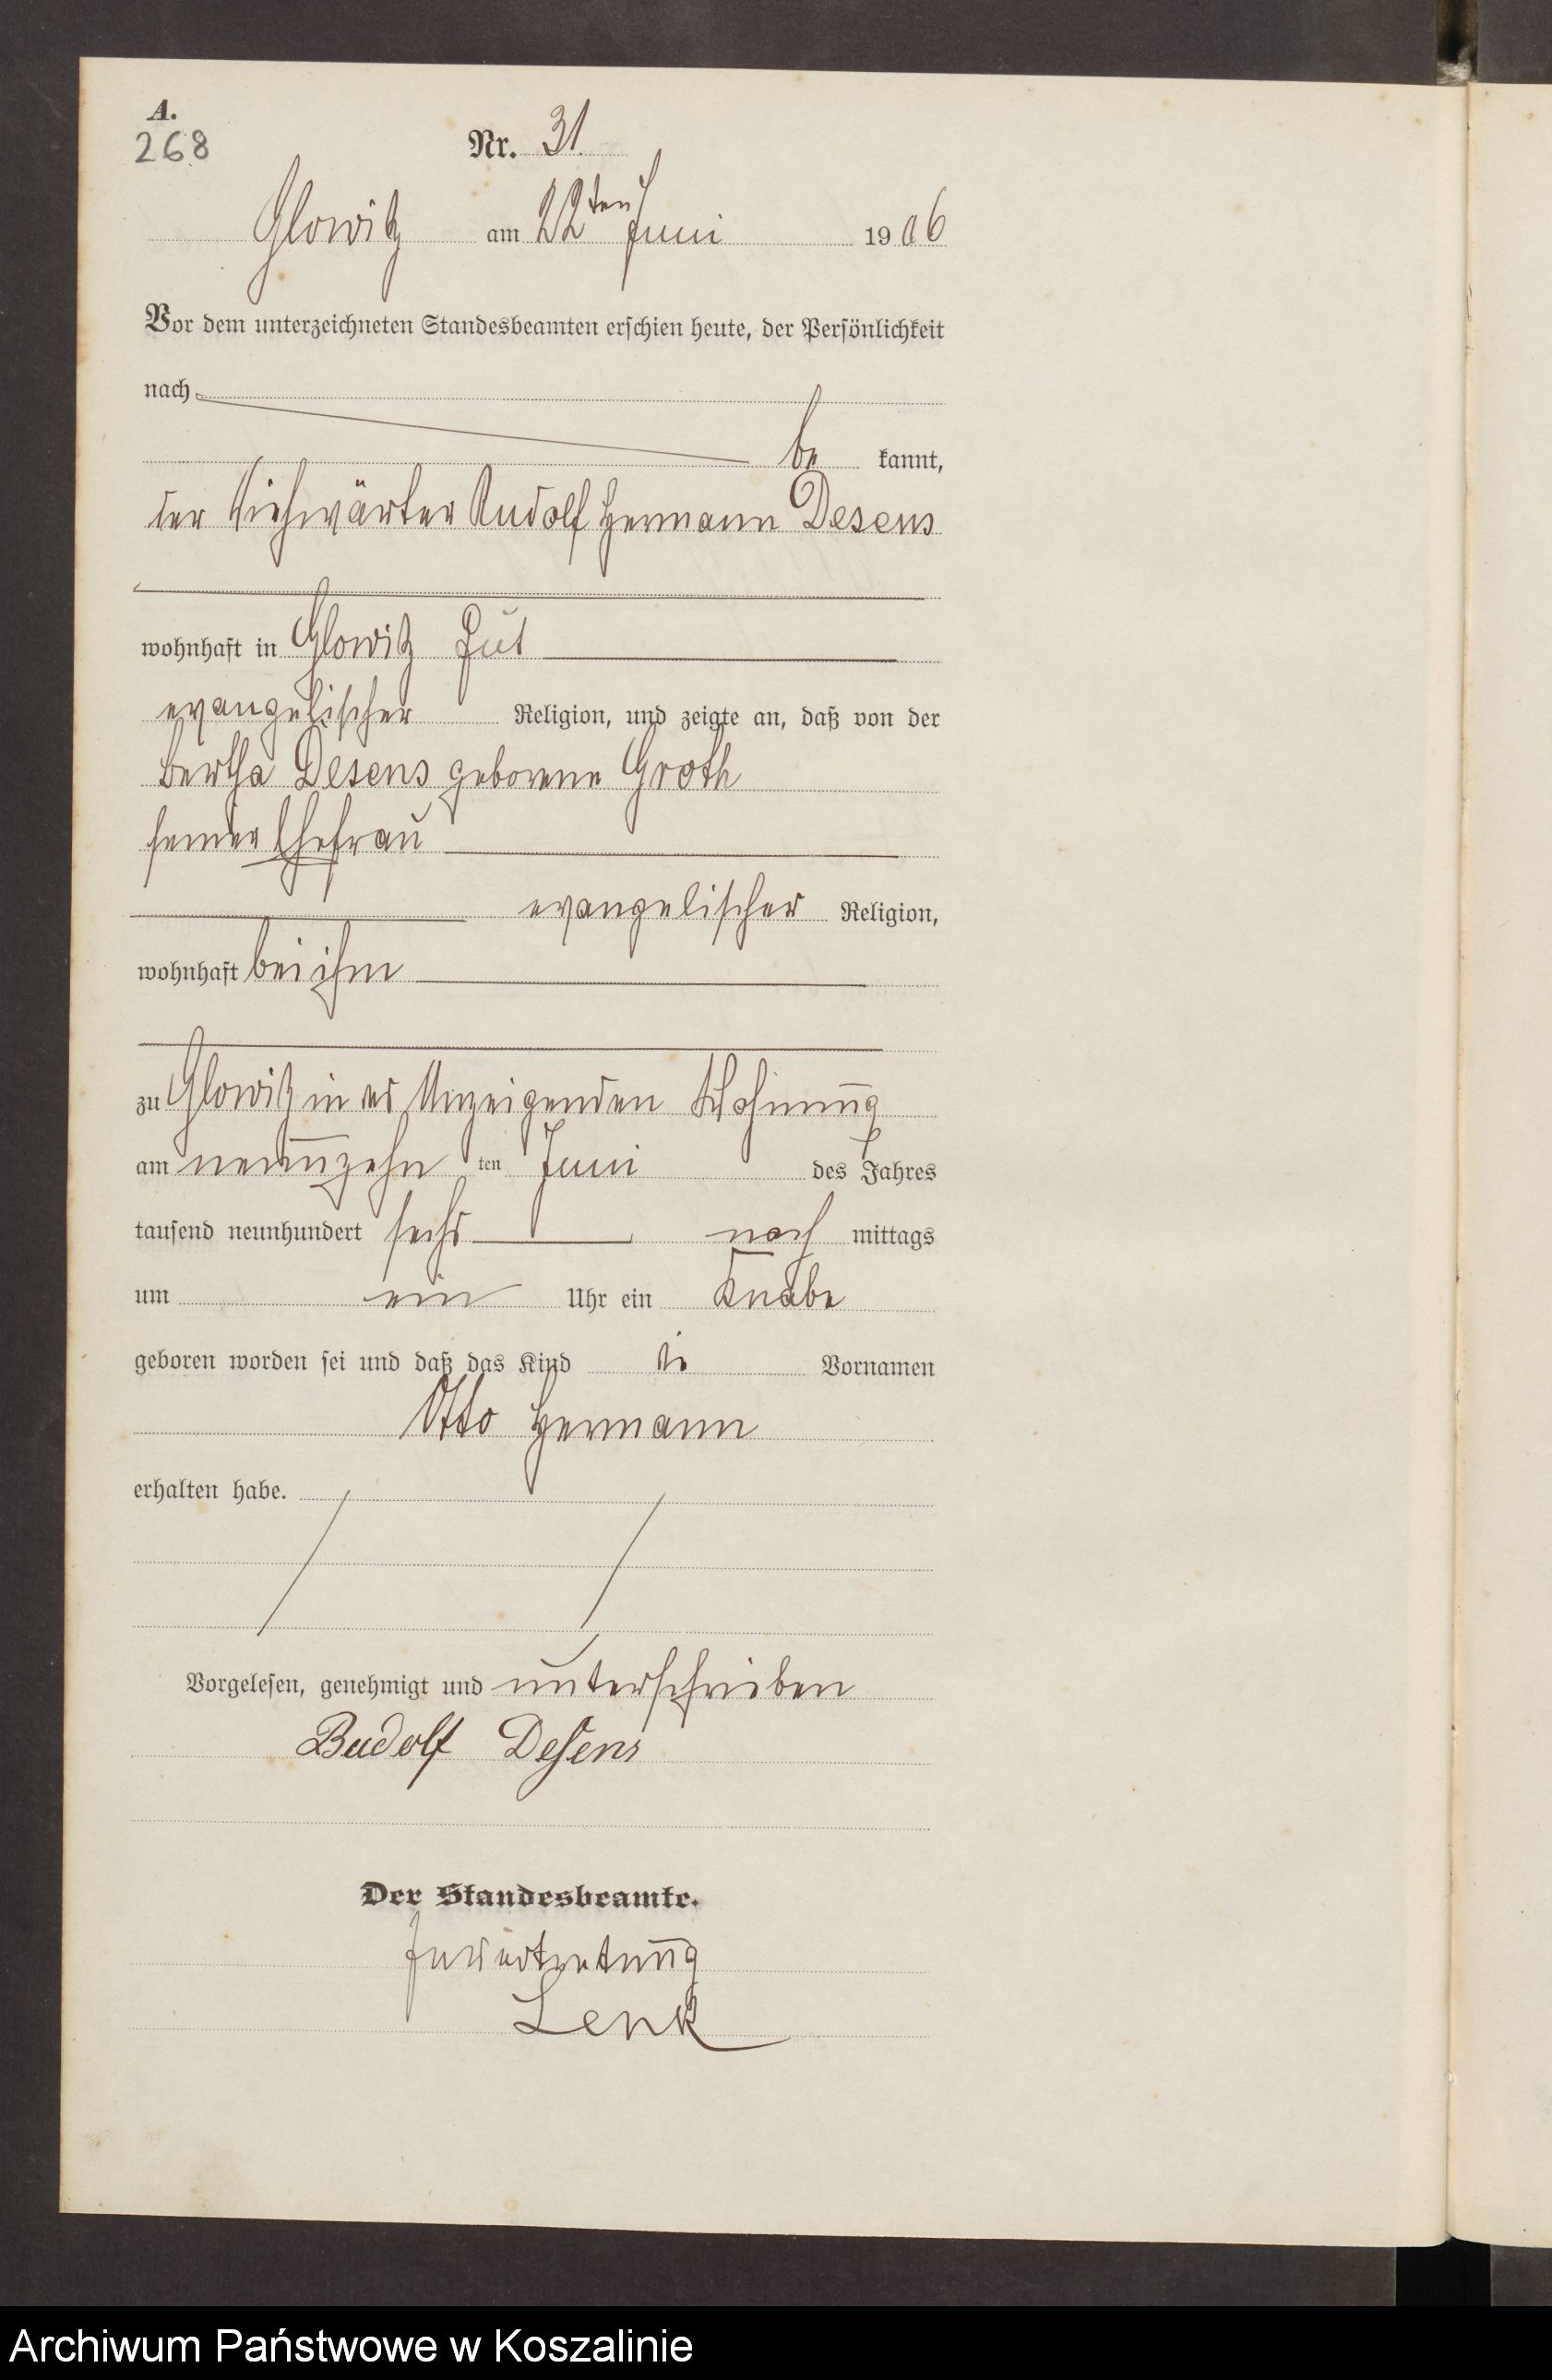 A.
268
Nr. 31
Glowitz am 22ten Juni 1906
Vor dem unterzeichneten Standesbeamten erschien heute, der Persönlichkeit
nach
be kannt,
der Viehwärter Rudolf Hermann Desens
wohnhaft in Glowitz Gut
evangelischer Religion, und zeigte an, daß von der
Bertha Desens geborene Groth
seiner Ehefrau
evangelischer Religion,
wohnhaft bei ihm
zu Glowitz in des Anzeigenden Wohnung
am neunzehn ten Juni des Jahres
tausend neunhundert sechs nach mittags
um ein Uhr ein Knabe
geboren worden sei und daß das Kind die Vornamen
Otto Hermann
erhalten habe.
Vorgelesen, genehmigt und unterschrieben
Rudolf Desens
Der Standesbeamte.
In Vertretung
Lenk
Archiwum Państwowe w Koszalinie